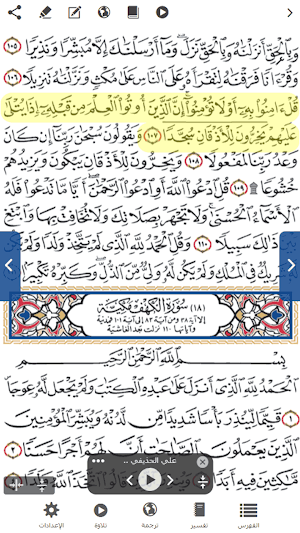 وَبِالْحَقِّ أَنزَلْنَاهُ وَبِالْحَقِّ نَزَلَ وَمَا أَرْسَلْنَاكَ إِلَّا مُبَشِّرًا وَنَذِيرًا
١٠٥ وَقُرْآنًا فَرَقْنَاهُ لِتَقْرَأَهُ عَلَى النَّاسِ عَلَىٰ مُكْثٍ وَنَزَّلْنَاهُ تَنزِيلًا ١٠٦
قُلْ آمِنُوا بِهِ أَوْ لَا تُؤْمِنُوا إِنَّ الَّذِينَ أُوتُوا الْعِلْمَ مِن قَبْلِهِ إِذَا يُتْلَىٰ
عَلَيْهِمْ يَخِرُّونَ لِلْأَذْقَانِ سُجَّدًا ١٠٧ وَيَقُولُونَ سُبْحَانَ رَبِّنَا إِن كَانَ
وَعْدُ رَبِّنَا لَمَفْعُولًا ١٠٨ وَيَخِرُّونَ لِلْأَذْقَانِ يَبْكُونَ وَيَزِيدُهُمْ
خُشُوعًا ۩ ١٠٩ قُلِ ادْعُوا اللَّهَ أَوِ ادْعُوا الرَّحْمَٰنَ أَيًّا مَّا تَدْعُوا فَلَهُ
الْأَسْمَاءُ الْحُسْنَىٰ وَلَا تَجْهَرْ بِصَلَاتِكَ وَلَا تُخَافِتْ بِهَا وَابْتَغِ
بَيْنَ ذَٰلِكَ سَبِيلًا ١١٠ وَقُلِ الْحَمْدُ لِلَّهِ الَّذِي لَمْ يَتَّخِذْ وَلَدًا وَلَمْ يَكُن
شَرِيكٌ فِي الْمُلْكِ وَلَمْ يَكُن لَّهُ وَلِيٌّ مِّنَ الذُّلِّ وَكَبِّرْهُ تَكْبِيرًا
(١٨) سُورَةُ الْكَهْفِ مَكِّيَّة
إلا آية ٣٨ ومن آية ٨٣ إلى آية ١٠١ فمدنية
وآياتها ١١٠ نزلت بعد الغاشية
بِسْمِ اللَّهِ الرَّحْمَٰنِ الرَّحِيمِ
الْحَمْدُ لِلَّهِ الَّذِي أَنزَلَ عَلَىٰ عَبْدِهِ الْكِتَابَ وَلَمْ يَجْعَل لَّهُ عِوَجًا
١ قَيِّمًا لِّيُنذِرَ بَأْسًا شَدِيدًا مِّن لَّدُنْهُ وَيُبَشِّرَ الْمُؤْمِنِينَ
الَّذِينَ يَعْمَلُونَ الصَّالِحَاتِ أَنَّ لَهُمْ أَجْرًا حَسَنًا ٢
مَّاكِثِينَ فِيهِ أَبَدًا قَالُوا اتَّخَذَ اللَّهُ وَلَدًا
علي الحذيفي ..
الفهرس
تفسير
ترجمة
تلاوة
الإعدادات